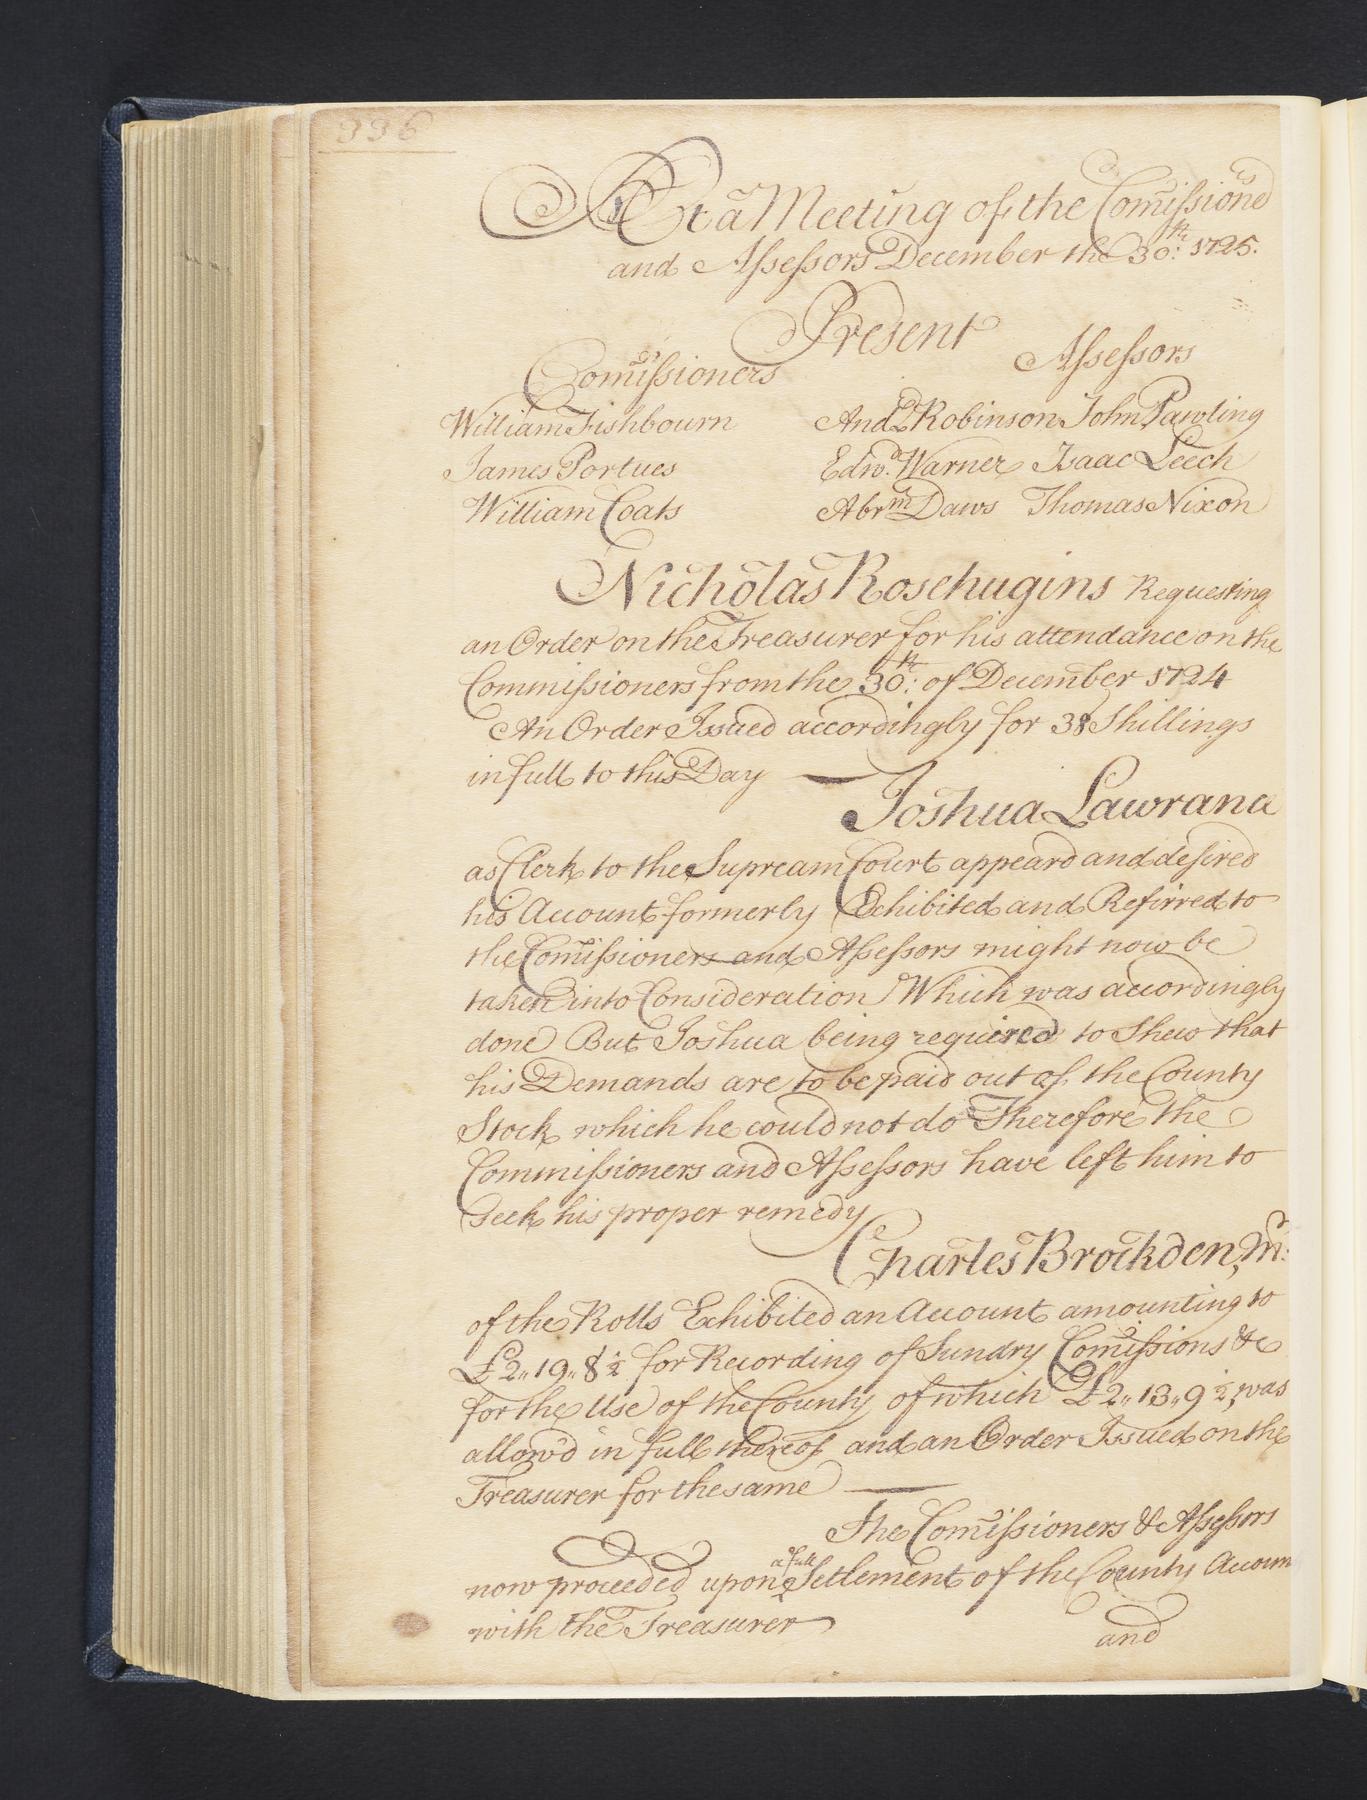 336
At a Meeting of the Comissione.rs
and Assessors December the 30:th 1725.
Present
Comissioners Assessors
William Fishbourn And.w Robinson John Pawling
James Portues Edw.d Warner Isaac Leech
William Coats Abr.m Daws Thomas Nixon
Nicholas Rosehugins Requesting
an Order on the Treasurer for his attendance on the
Commissioners from the 30:th of December 1724
An Order Issued accordingly for 38 Shillings
in full to this Day
Joshua Lawrance
as Clerk to the Supream Court appeard and desired
his Account formerly Exhibited and Refirred to
the Comissioners and Assessors might now be
taken into Consideration Which was accordingly
done But Joshua being required to Shew that
his Demands are to be paid out of the County
Stock which he could not do Therefore the
Commissioners and Assessors have left him to
Seek his proper remedy
Charles Brockden, M.r
of the Rolls Exhibited an Account amounting to
£2,,19,,8½ for Recording of Sundry Comissions &c
for the Use of the County of which £2,,13,,9½, was
allow'd in full thereof and an Order Issued on the
Treasurer for the same
The Comissioners & Assessors
now proceeded upon a full Settlement of the County Accoun
with the Treasurer
and